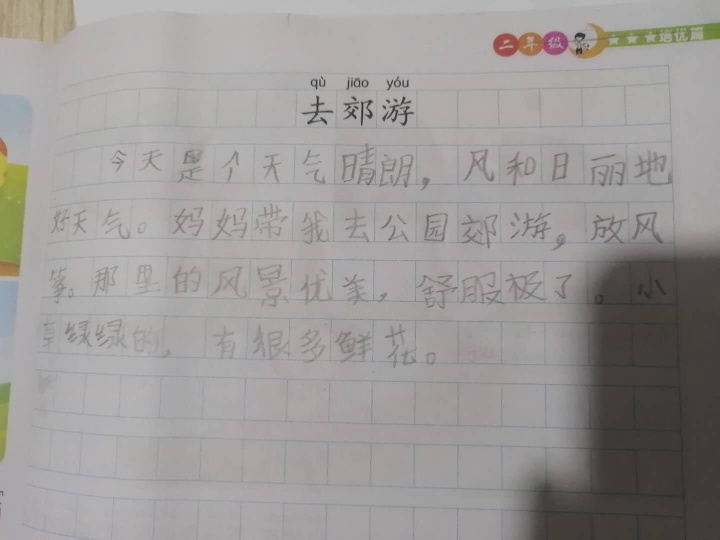 二年级 ★★★培优篇
qù jiāo yóu
去郊游
今天是个天气晴朗，风和日丽地
好天气。妈妈带我去公园郊游，放风
筝。那里的风景优美，舒服极了。小
草绿绿的，有很多鲜花。